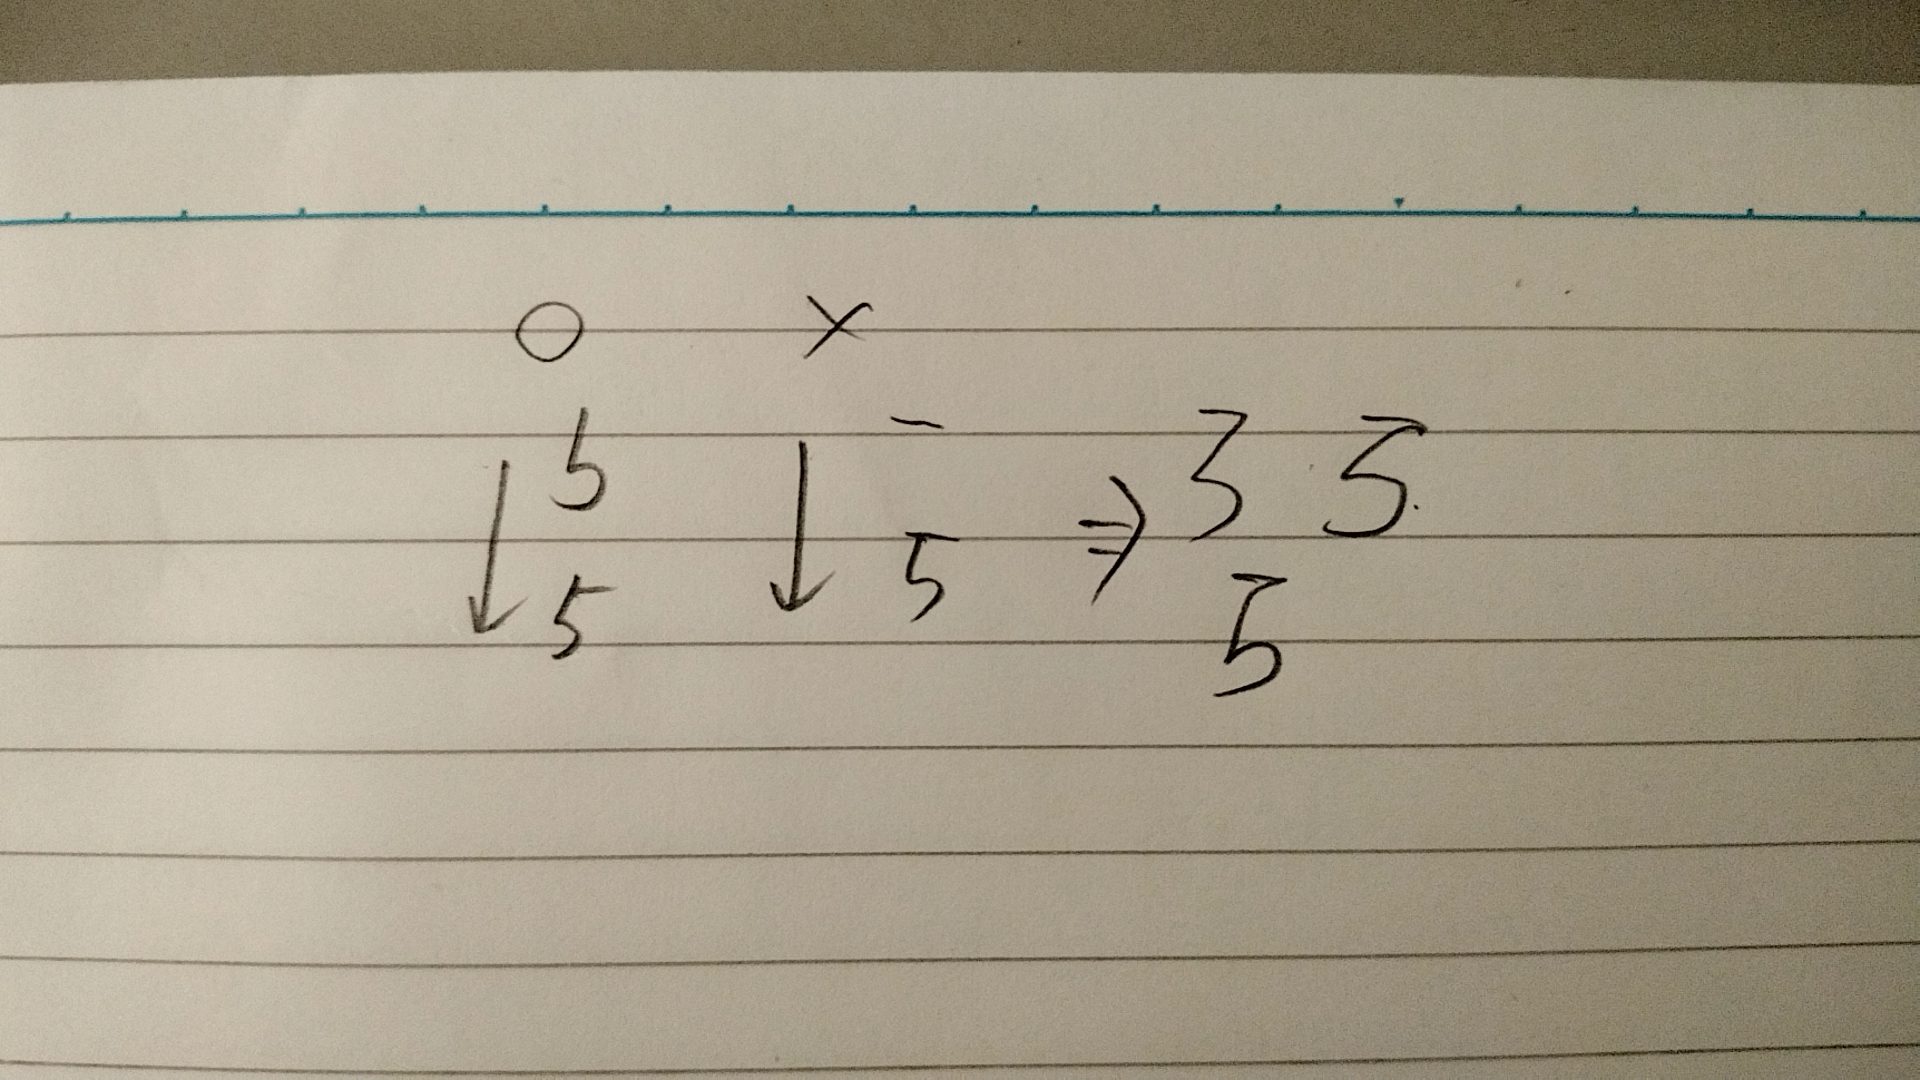 ○ ×
↓ 5 ↓ ‾ ⇒ 3 5
5 5 5